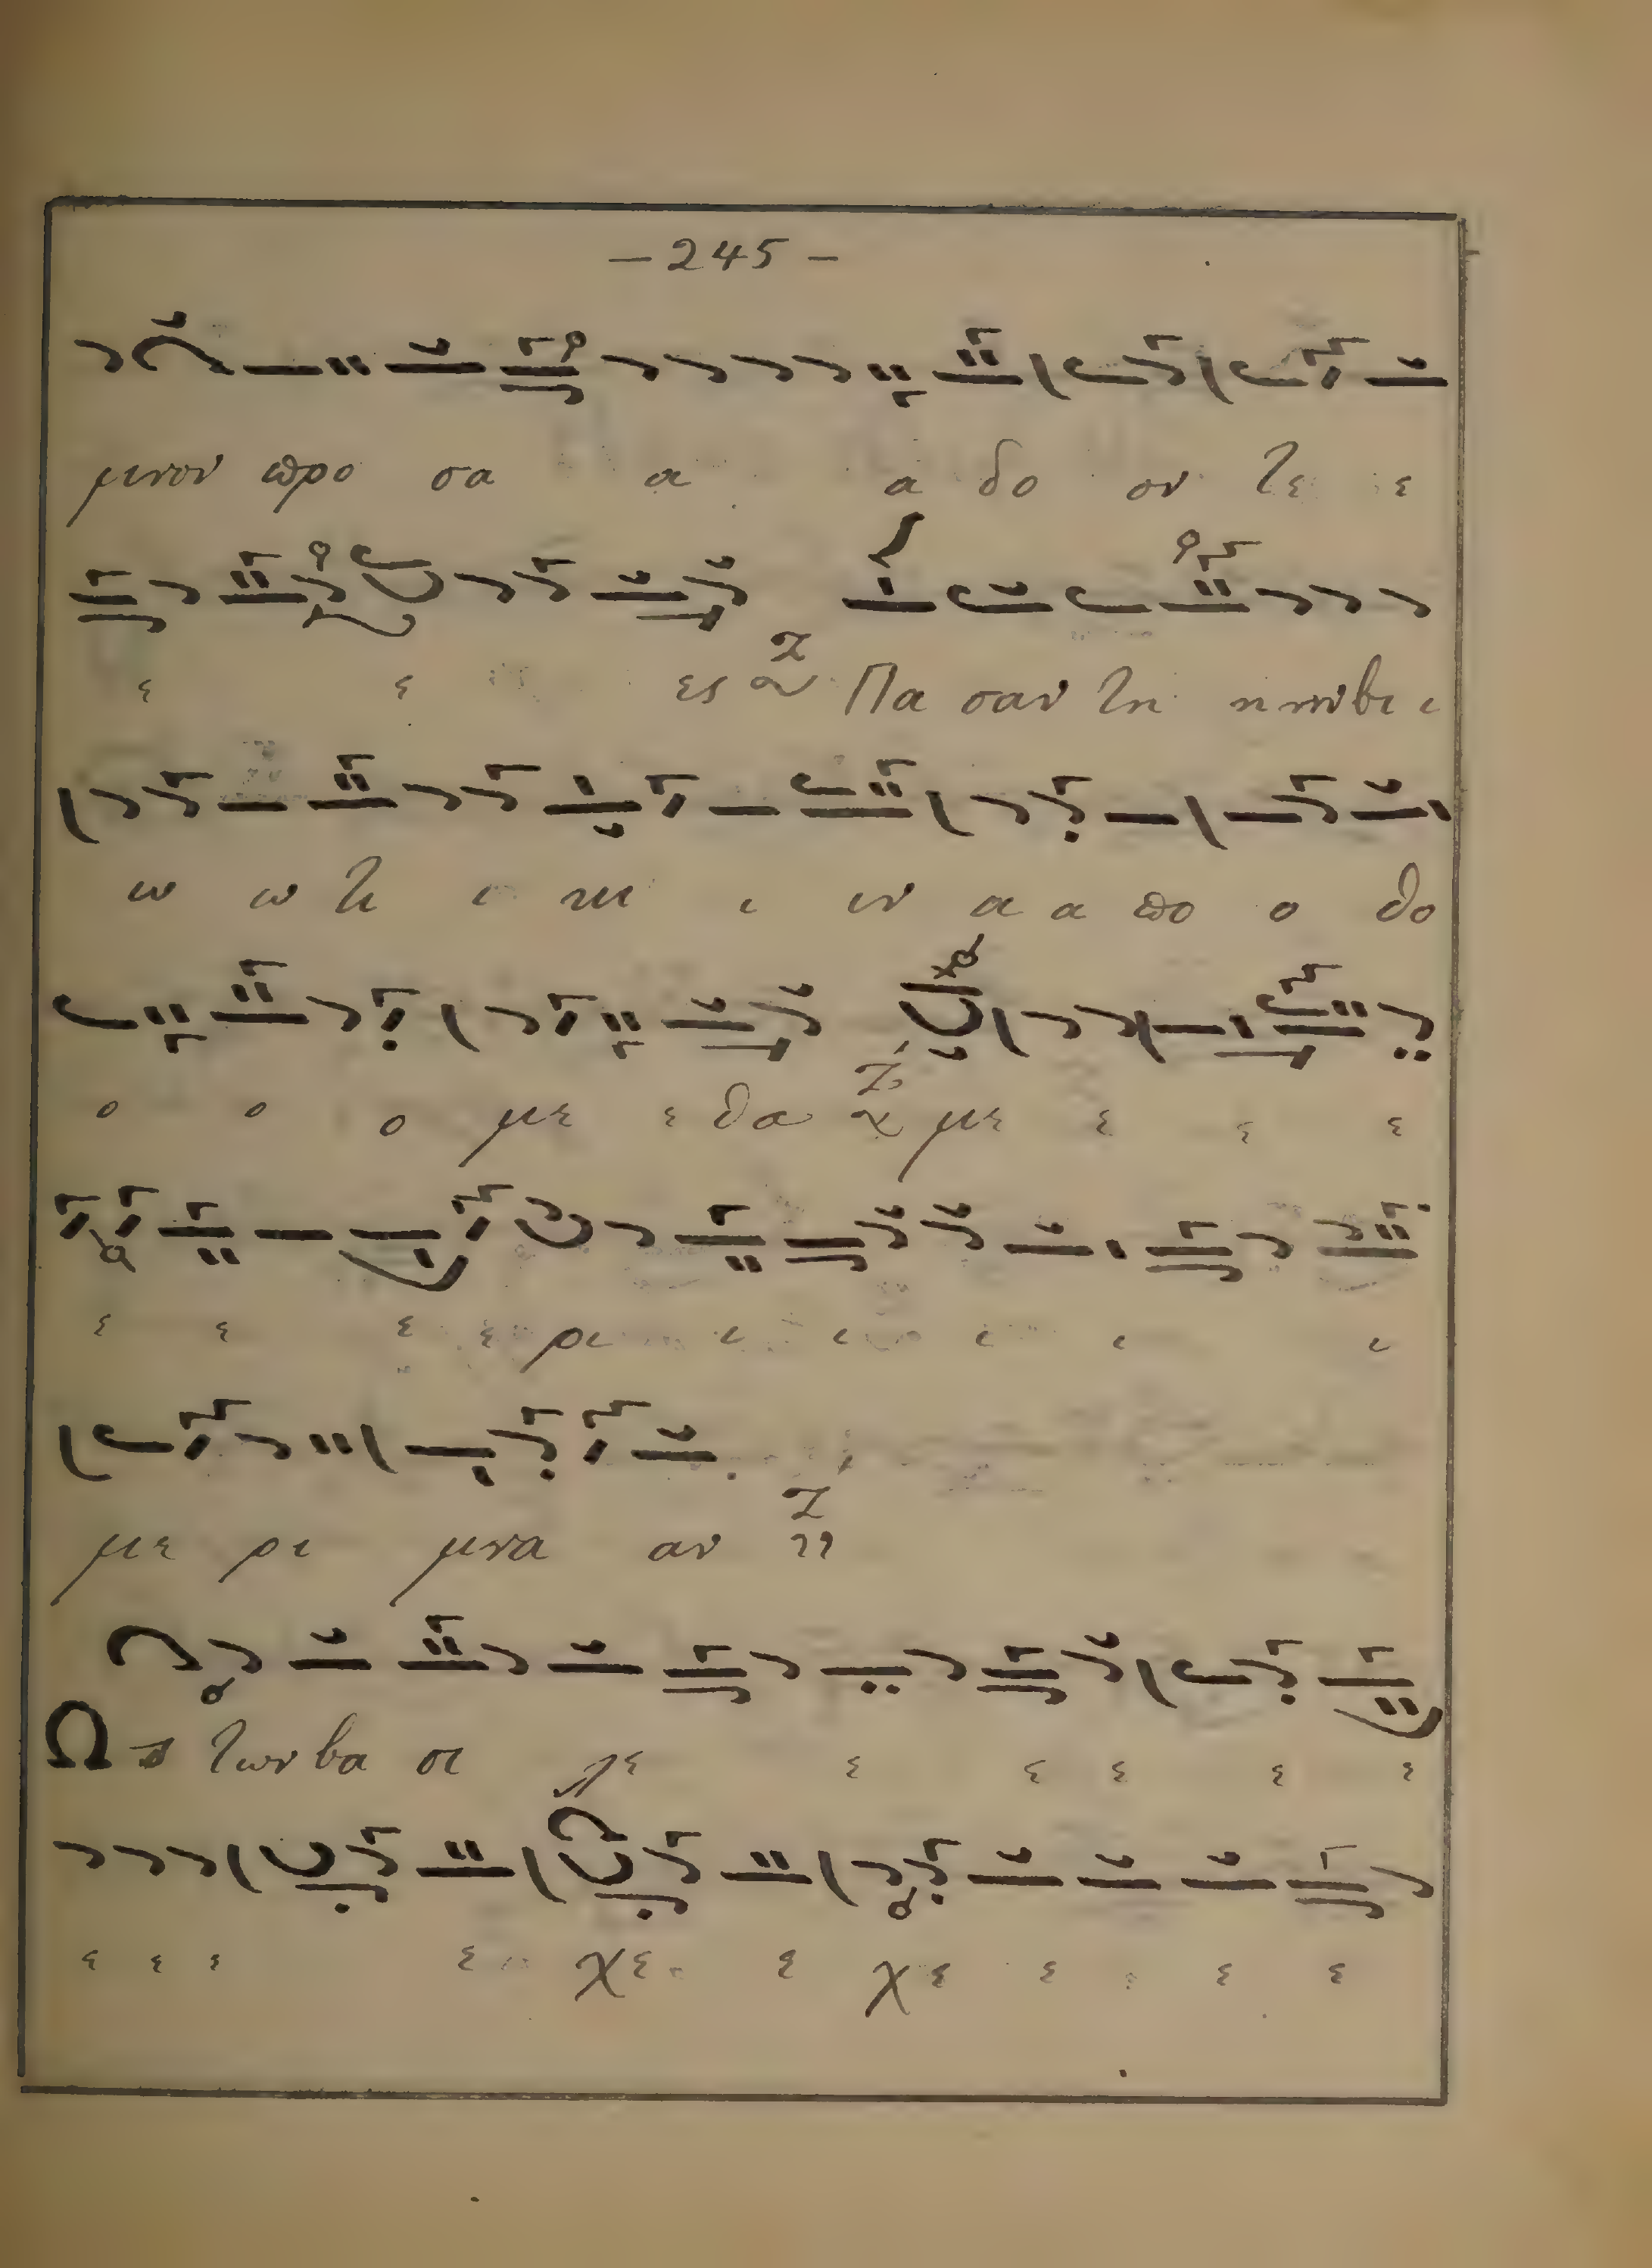 - 245 -
μνον προ σα α α δο ον τε ε
ε ε ες Πα σαν τη η ννβι ι
ω ω τι ι κη ι ιν α α πο ο θο
ο ο ο με ε θα με ε ε ε
ε ε ε ε ρι ι ι ι ι ι
με ρι μνα αν
Ως των βα σι λε ε ε ε ε ε
ε ε ε ε χε ε χε ε ε ε